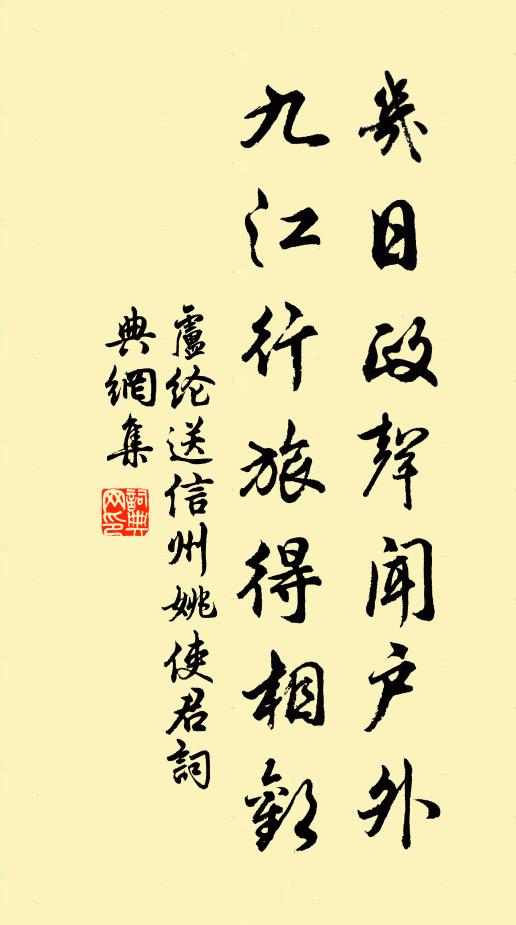 幾日政聲聞户外
九江行旅得相歡
盧纶送信州姚使君詞
典網集
詞典
网印